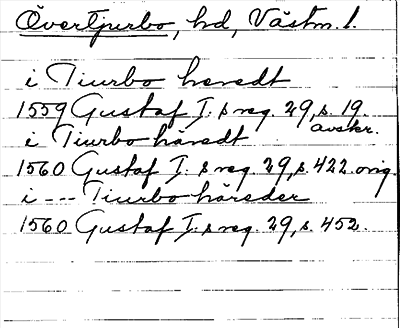 Övertjurbo, hd, Västm. l.
i Tiurbo heredt
1559 Gustaf I:s reg. 29, s. 19.
avskr.
i Tiurbo häredt
1560 Gustaf I:s reg. 29, s. 422 orig.
i --- Tiurbo häreder
1560 Gustaf I:s reg. 29, s. 452.